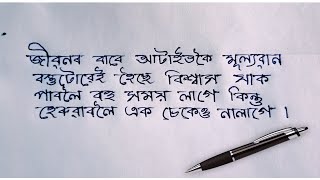 জীৱনৰ বাবে আটাইতকৈ মূল্যবান
বস্তুটোৱেই হৈছে বিশ্বাস যাক
পাবলৈ বহু সময় লাগে কিন্তু
হেৰুৱাবলৈ এক চেকেণ্ড নালাগে ।